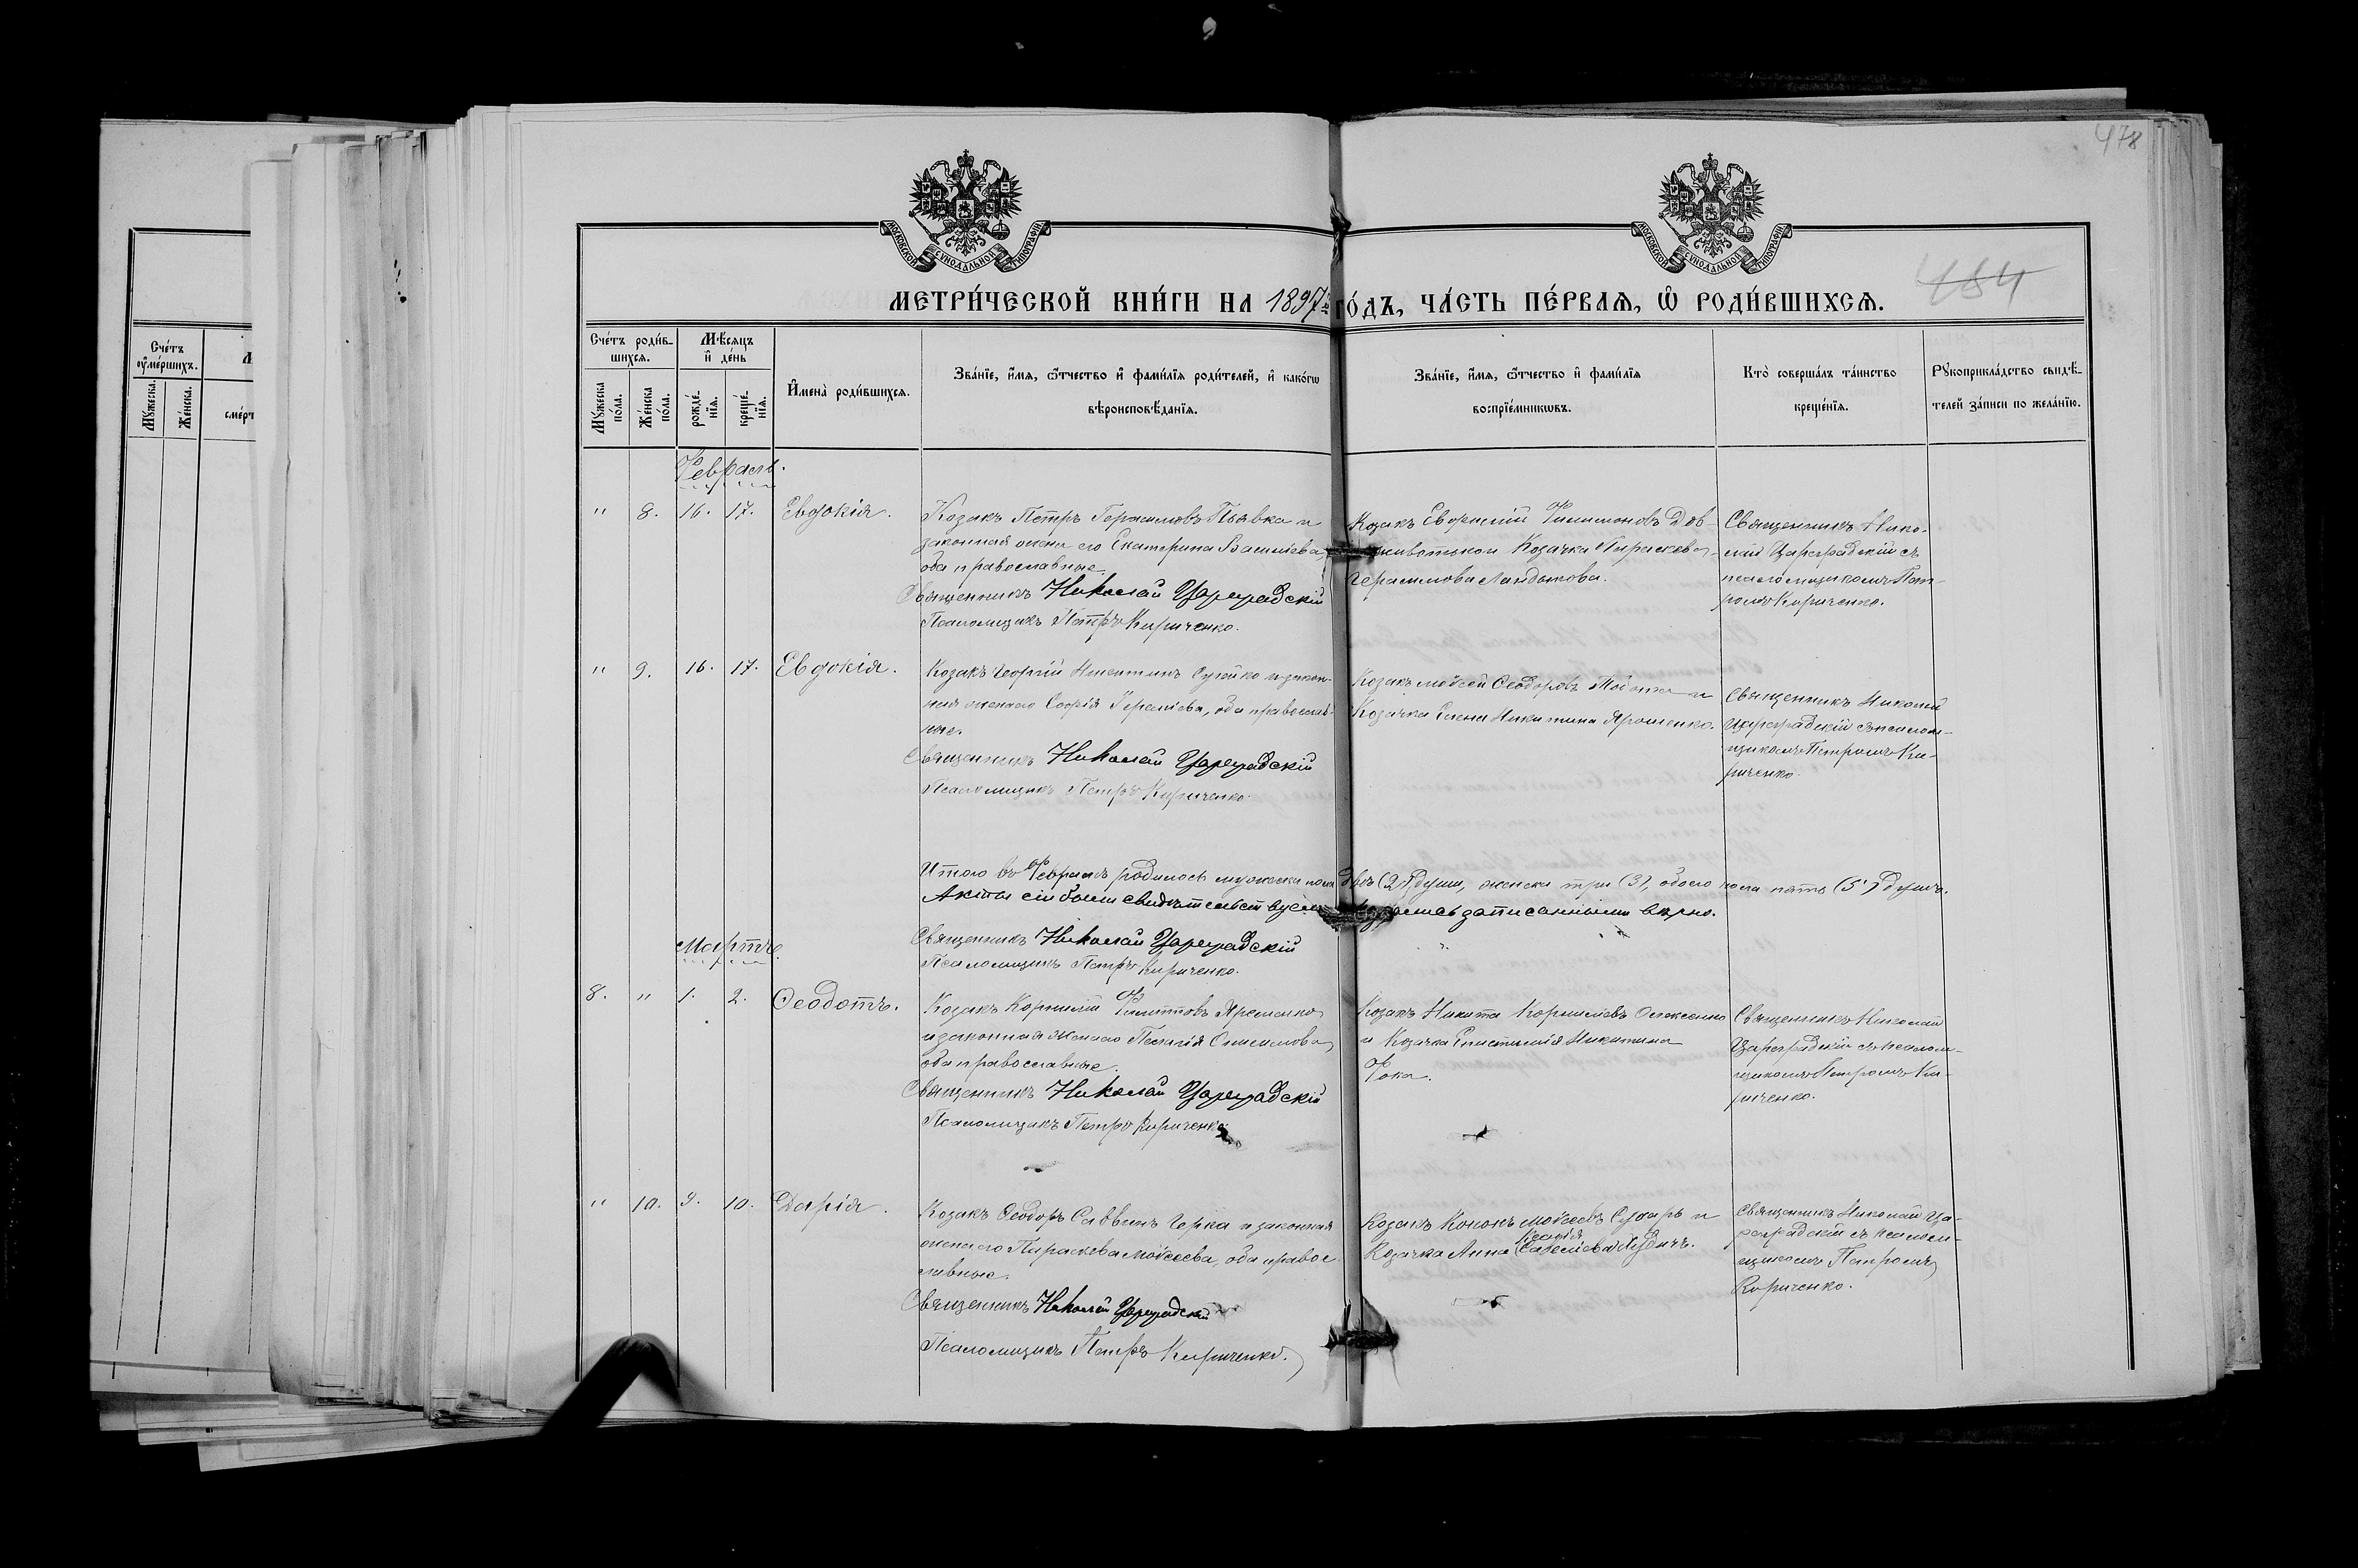 478
484
МОСКОВСКОЙ СѴНОДАЛЬНОЙ ТИПОГРАФІИ
МОСКОВСКОЙ СѴНОДАЛЬНОЙ ТИПОГРАФІИ
МЕТРИ́ЧЕСКОЙ КНИ́ГИ НА 1897 й ГО́ДЪ, ЧА́СТЬ ПЕ́РВАѦ, Ѡ҆ РОДИ́ВШИХСѦ.
Сче́тъ ᲂу҆ме́ршихъ.
Мꙋ́жеска.
Же́нска.
Сче́тъ роди́вшихсѧ.
Мꙋ́жеска по́ла.
Же́нска по́ла.
Мѣ́сѧцъ и҆ де́нь
рожде́нїѧ.
креще́нїѧ.
И҆мена̀ роди́вшихсѧ.
Зва́нїе, и҆́мѧ, ѻ҆́тчество и҆ фами́лїѧ роди́телей, и҆ како́гѡ
вѣроисповѣ́данїѧ.
Зва́нїе, и҆́мѧ, ѻ҆́тчество и҆ фами́лїѧ
воспрїе́мникѡвъ.
Кто̀ соверша́лъ та́инство
креще́нїѧ.
Рꙋкоприкла́дство свидѣ́-
телей за́писи по жела́нїю.
Февраль.
" 8. 16. 17. Евдокія.
Козакъ Петръ Герасимовъ Пьявка и
законная жена его Екатерина Васильева,
оба православные.
Священникъ Николай Цареградскій
Псаломщикъ Петръ Кириченко.
Козакъ Евфимій Филимоновъ Дов-
и Козачка Параскева
Герасимова
Священникъ Нико-
лай Цареградскій съ
псаломщикомъ Пет-
ромъ Кириченко.
" 9. 16. 17. Евдокія.
Козакъ Георгій и закон-
ная жена его Софія, оба православ-
ные.
Священникъ Николай Цареградскій
Псаломщикъ Петръ Кириченко.
Козакъ Моѵсей Ѳеодоровъ и
Козачка Елена Никитина Ярошенко.
Священникъ Николай
Цареградскій съ псалом-
щикомъ Петромъ Ки-
риченко.
Итого въ Февралѣ родилось мужеска пола двѣ (2) души, женска три (3), обоего пола пять (5) душъ.
Акты сіи были свидѣтельствуемы и оказались записанными вѣрно.
Священникъ Николай Цареградскій
Псаломщикъ Петръ Кириченко.
Мартъ.
8. " 1. 2. Ѳеодотъ.
Козакъ Корнилій Филипповъ Яременко
и законная жена его Пелагія Онисимова,
оба православные.
Священникъ Николай Цареградскій
Псаломщикъ Петръ Кириченко.
Козакъ Никита Корниліевъ
и Козачка Епистимія Никитина
Фока.
Священникъ Николай
Цареградскій съ псалом-
щикомъ Петромъ Ки-
риченко.
" 10. 9. 10. Дарія.
Козакъ Ѳеодоръ Саввинъ Черка и законная
жена его Параскева Моѵсеева, оба право-
славные.
Священникъ Николай Цареградскій
Псаломщикъ Петръ Кириченко.
Козакъ Кононъ Моѵсеевъ и
Козачка Анна
Священникъ Николай Ца-
реградскій съ псалом-
щикомъ Петромъ
Кириченко.